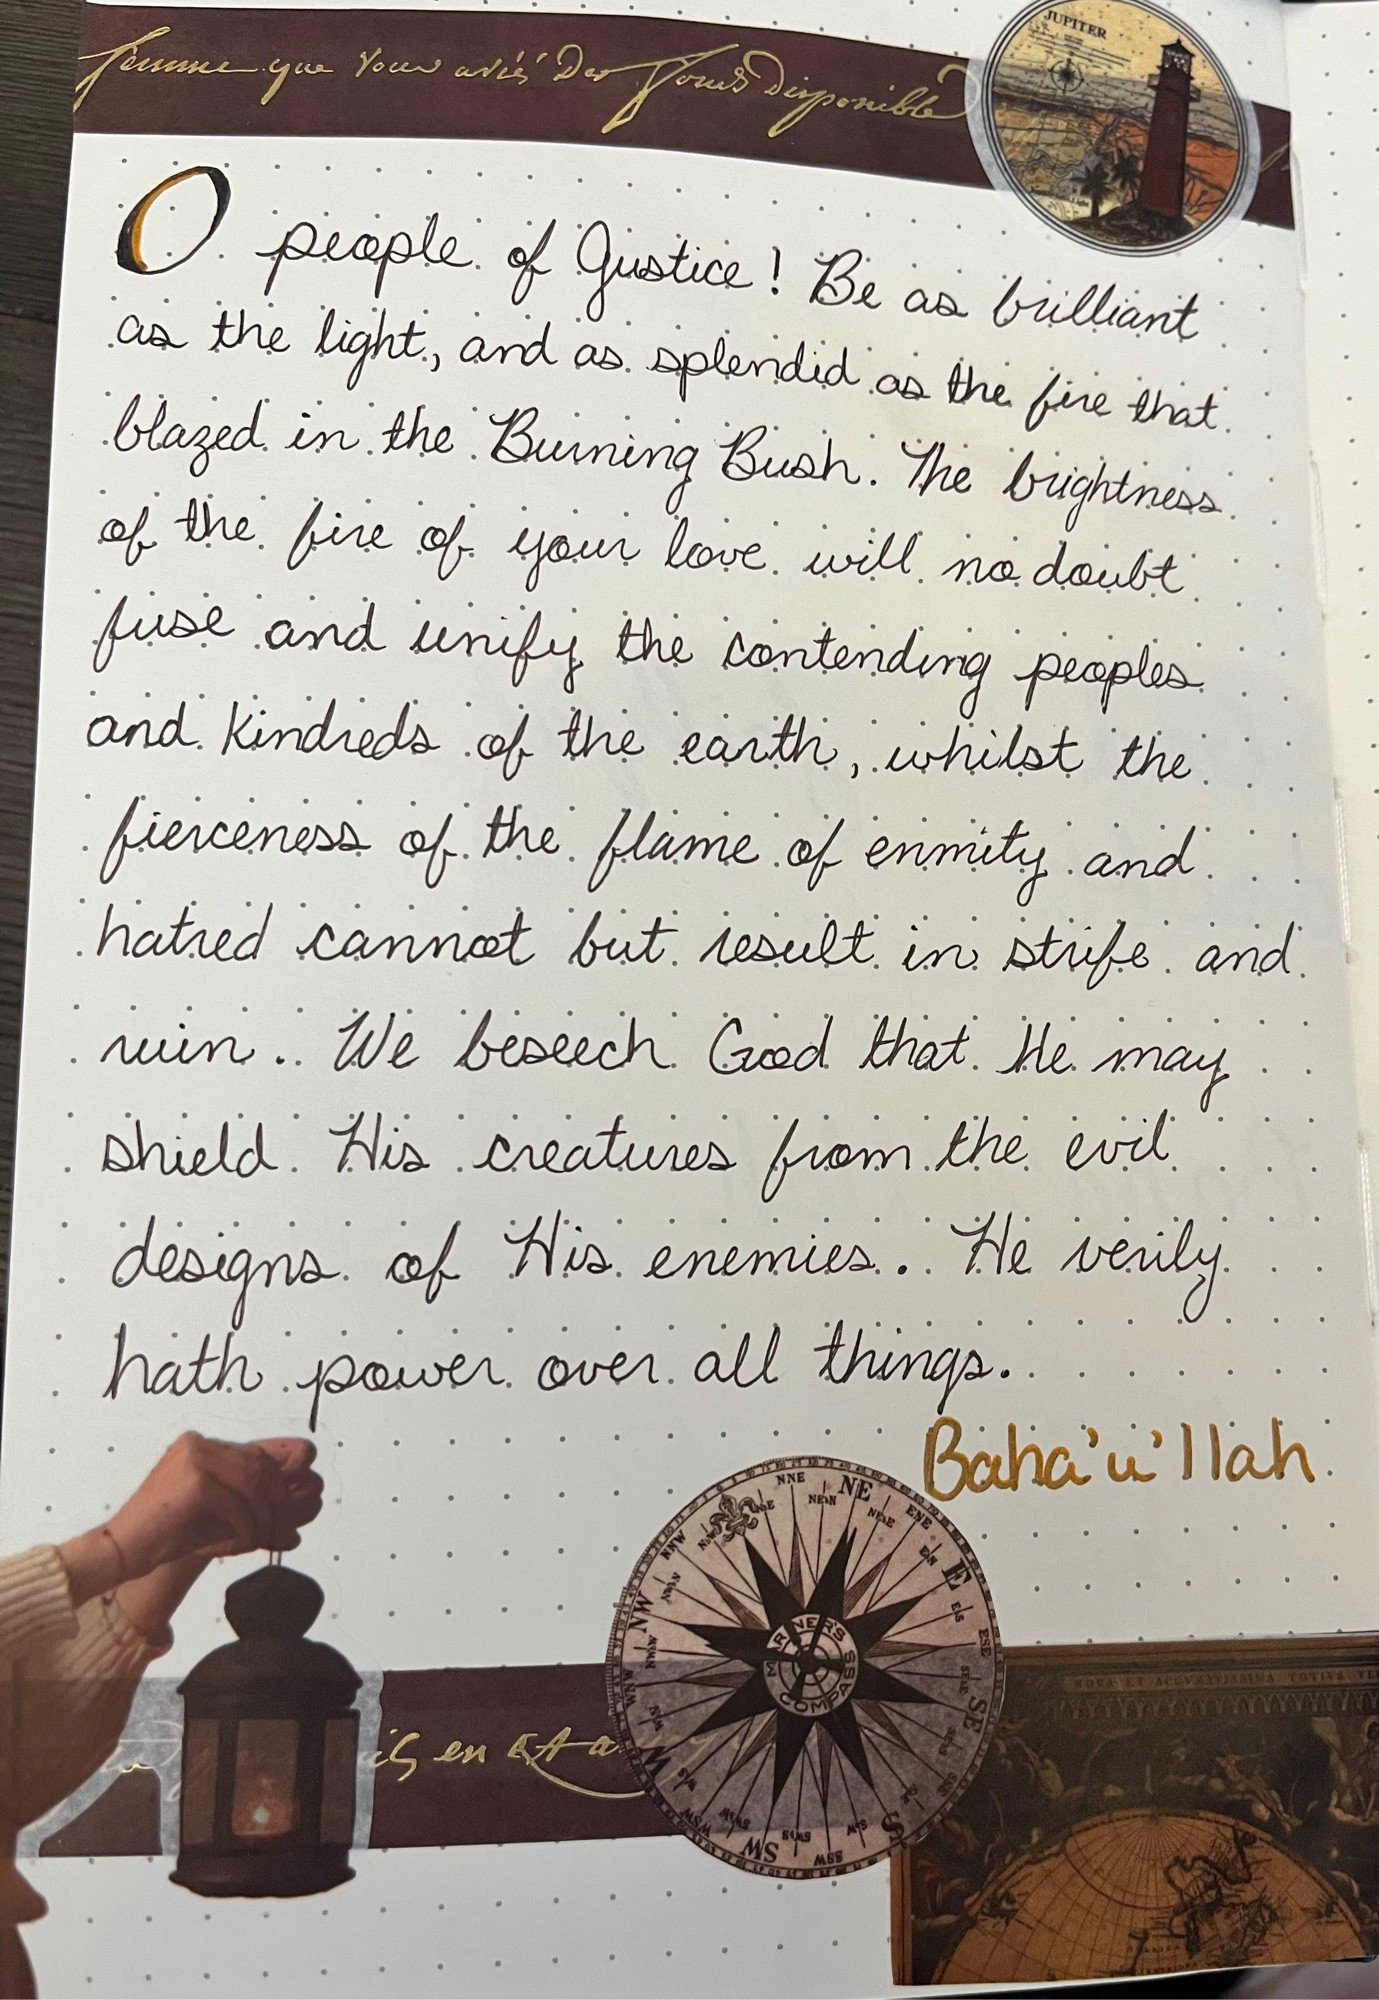 femme que vous aviés Des Jours disponible
JUPITER
O people of Justice! Be as brilliant
as the light, and as splendid as the fire that
blazed in the Burning Bush. The brightness
of the fire of your love will no doubt
fuse and unify the contending peoples
and kindreds of the earth, whilst the
fierceness of the flame of enmity and
hatred cannot but result in strife and
ruin.. We beseech God that He may
shield His creatures from the evil
designs of His enemies.. He verily
hath power over all things.
Baha'u'llah
NNE
NE
ENE
E
ESE
SE
SW
WSW
W
WNW
NW
NNW
MARINER'S
COMPASS
en
NOVA ET ACCVRATISSIMA TOTIVS TE